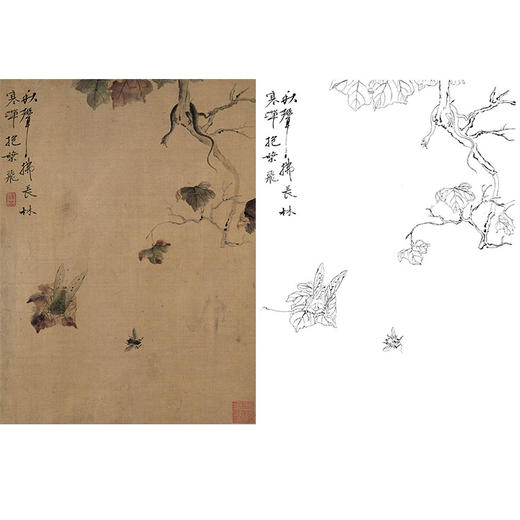 秋聲拂長林
寒蟬抱葉飛
秋聲拂長林
寒蟬抱葉飛